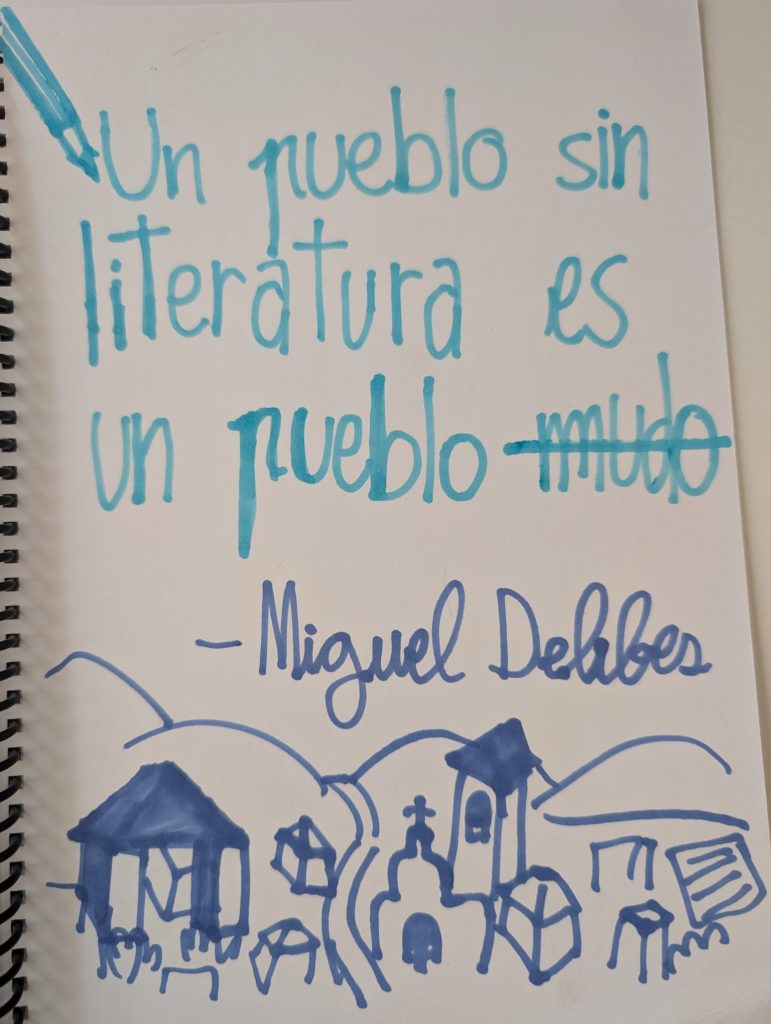 Un pueblo sin
literatura es
un pueblo mudo
- Miguel Delibes